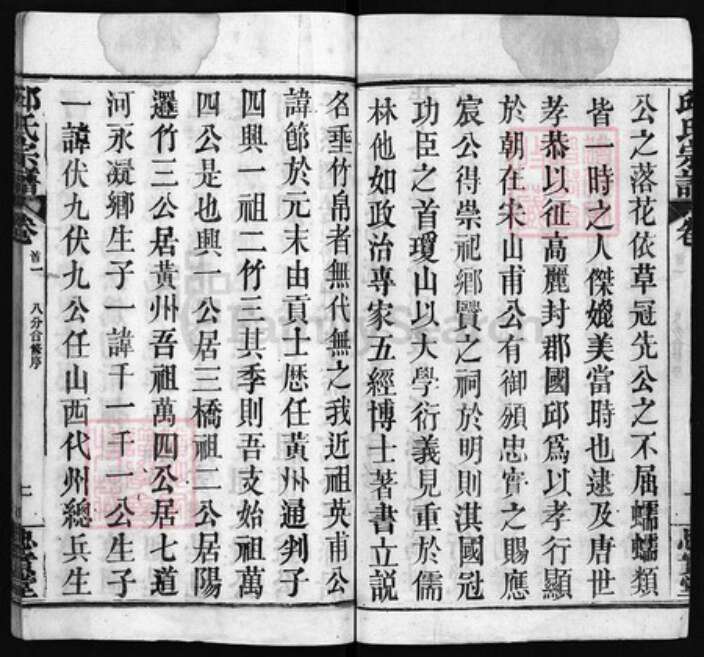 公之落花依草冠先公之不屈蠕蠕類
皆一時之人傑媲美當時也逮及唐世
孝恭以征高麗封郡國邱為以孝行顯
於朝在宋山甫公有御頒忠實之賜應
宸公得崇祀鄉賢之祠於明則淇國冠
功臣之首瓊山以大學衍義見重於儒
林他如政治專家五經博士著書立説
名垂竹帛者無代無之我近祖英甫公
諱節於元末由貢士歷任黃州通判子
四興一祖二竹三其季則吾支始祖萬
四公是也興一公居三橋祖二公居陽
邏竹三公居黃州吾祖萬四公居七道
河永凝鄉生子一諱千一千一公生子
一諱伏九伏九公任山西代州總兵生
邱氏宗譜 卷 首一 八分合修序 二 忠實堂
FamilySearch